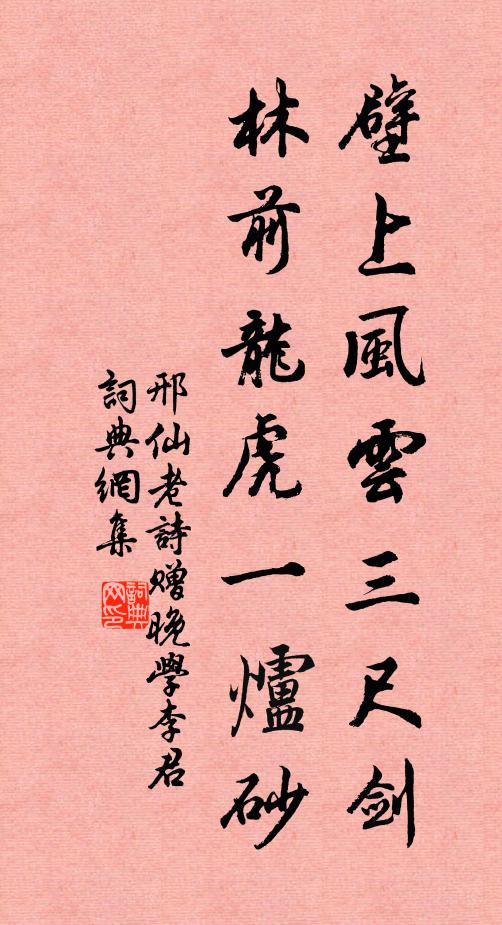 壁上風雲三尺劍
林前龍虎一爐砂
邢仙老詩贈晚學李君
詞典網集
詞典
网印